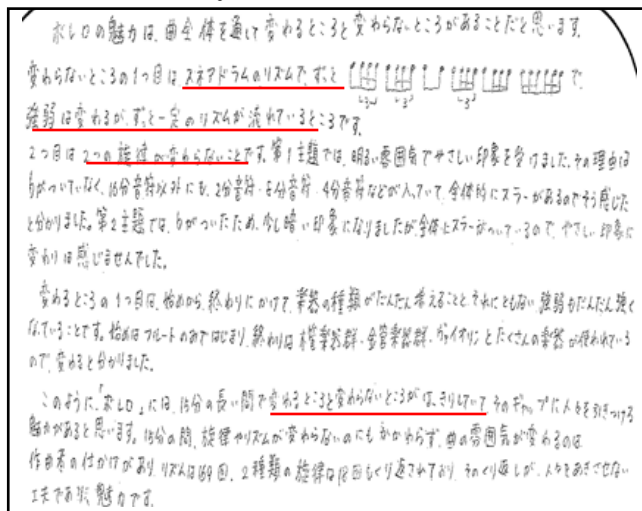 ボレロの魅力は、曲全体を通して変わるところと変わらないところがあることだと思います。
変わらないところの1つ目はスネアドラムのリズムで、ずっと で
強弱は変わるが、ずっと一定のリズムが流れているところです。
2つ目は2つの旋律が変わらないことです。第1主題では、明るい雰囲気でやさしい印象を受けました。その理由は
♭がついていなく、16分音符以外にも、2分音符・8分音符・4分音符などが入っていて、全体的にスラーがあるのでそう感じた
と分かりました。第2主題では、♭がついたため、少し暗い印象になりましたが全体にスラーがついているので、やさしい印象に
変わりは感じませんでした。
変わるところの1つ目は、始めから、終わりにかけて、楽器の種類がだんだん増えることと、それにともない強弱もだんだん強く
なっていることです。始めはフルートのみではじまり、終わりは木管楽器群・金管楽器群・ヴァイオリンとたくさんの楽器が使われている
ので、変わると分かりました。
このように、「ボレロ」には、15分の長い間で変わるところと変わらないところがはっきりしていて、そのギャップに人々を引きつける
魅力があると思います。15分の間、旋律やリズムが変わらないのにもかかわらず、曲の雰囲気が変わるのは
作曲者の仕かけがあり、リズムは169回、2種類の旋律は18回もくり返されており、そのくり返しが、人々をあきさせない
工夫であり、魅力です。